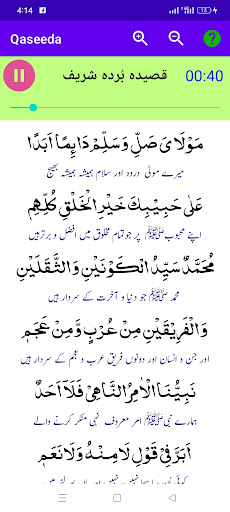 4:14
Qaseeda
قصیدہ بُردہ شریف
00:40
مَوْلَایَ صَلِّ وَسَلِّمْ دَایِمًا اَبَدًا
میرے مولیٰ درود اور سلام ہمیشہ ہمیشہ بھیج
عَلٰی حَبِیْبِكَ خَیْرِ الْخَلْقِ كُلِّهِمِ
اپنے محبوب ﷺ پر جو تمام مخلوق میں افضل و برتر ہیں
مُحَمَّدٌ سَیِّدُ الْكَوْنَیْنِ وَالثَّقَلَیْنِ
محمد ﷺ جو دنیا و آخرت کے سردار ہیں
وَالْفَرِیْقَیْنِ مِنْ عُرْبٍ وَّمِنْ عَجَمِ
اور جن و انسان اور دونوں فریق عرب و عجم کے سردار ہیں
نَبِیُّنَا الْاٰمِرُ النَّاهِیْ فَلَآ اَحَدٌ
ہمارے نبی ﷺ امر معروف نہی منکر کرنے والے
اَبَرَّ فِیْ قَوْلِ لَا مِنْهُ وَلَا نَعَمِ